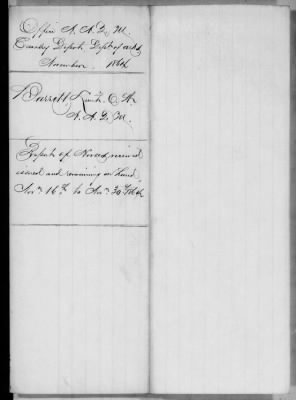 Office A. A. Q. M.
Cavalry Depot Dept of
November 1864
Barrett Lieut. C. W.
A. A. Q. M.
Report of received
issued and remaining on hand
Nov. 16th to Nov. 30th 1864